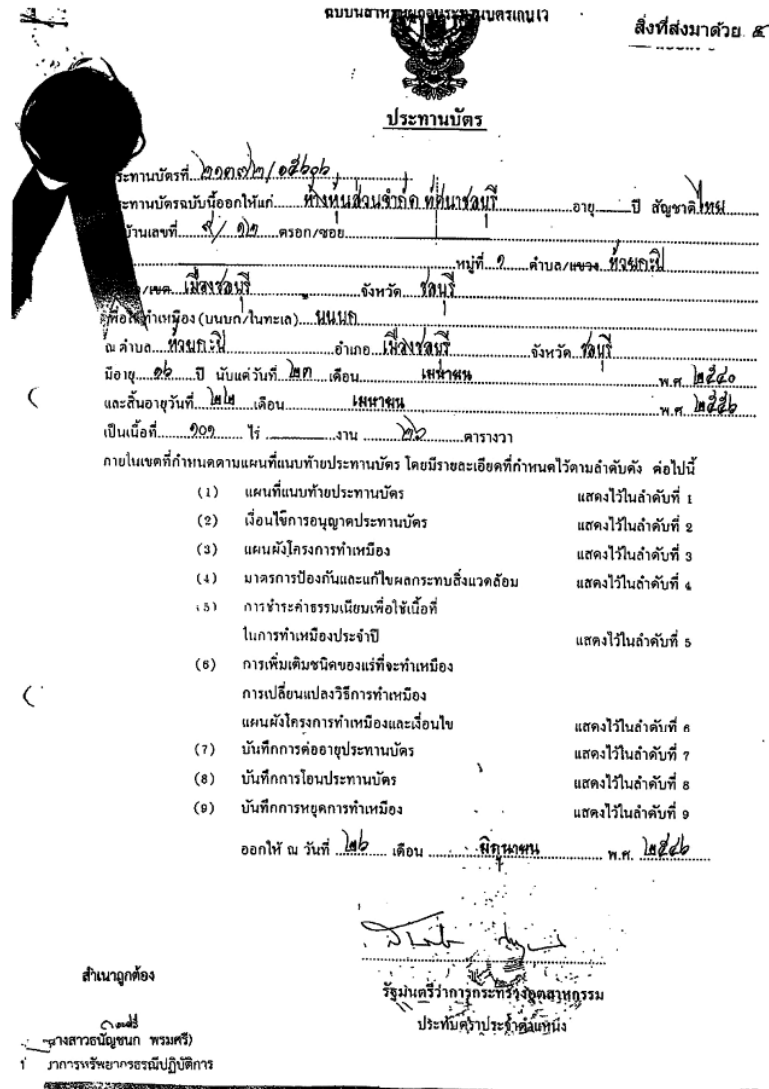 สิ่งที่ส่งมาด้วย ๕
ประทานบัตร
ประทานบัตรที่ ๒๑๓๗๒/๑๕๖๐๖
ประทานบัตรฉบับนี้ออกให้แก่ ห้างหุ้นส่วนจำกัด ทัศนาชลบุรี อายุ ปี สัญชาติ ไทย
บ้านเลขที่ ๙/๑๒ ตรอก/ซอย
หมู่ที่ ๑ ตำบล/แขวง ห้วยกะปิ
/เขต เมืองชลบุรี จังหวัด ชลบุรี
เพื่อใช้ทำเหมือง (บนบก/ในทะเล) บนบก
ณ ตำบล ห้วยกะปิ อำเภอ เมืองชลบุรี จังหวัด ชลบุรี
มีอายุ ๑๖ ปี นับแต่วันที่ ๒๓ เดือน เมษายน พ.ศ. ๒๕๔๐
และสิ้นอายุวันที่ ๒๒ เดือน เมษายน พ.ศ. ๒๕๕๖
เป็นเนื้อที่ ๑๐๑ ไร่ งาน ๒๖ ตารางวา
ภายในเขตที่กำหนดตามแผนที่แนบท้ายประทานบัตร โดยมีรายละเอียดที่กำหนดไว้ตามลำดับดัง ต่อไปนี้
(1) แผนที่แนบท้ายประทานบัตร แสดงไว้ในลำดับที่ 1
(2) เงื่อนไขการอนุญาตประทานบัตร แสดงไว้ในลำดับที่ 2
(3) แผนผังโครงการทำเหมือง แสดงไว้ในลำดับที่ 3
(4) มาตรการป้องกันและแก้ไขผลกระทบสิ่งแวดล้อม แสดงไว้ในลำดับที่ 4
(5) การชำระค่าธรรมเนียมเพื่อใช้เนื้อที่
ในการทำเหมืองประจำปี แสดงไว้ในลำดับที่ 5
(6) การเพิ่มเติมชนิดของแร่ที่จะทำเหมือง
การเปลี่ยนแปลงวิธีการทำเหมือง
แผนผังโครงการทำเหมืองและเงื่อนไข แสดงไว้ในลำดับที่ 6
(7) บันทึกการต่ออายุประทานบัตร แสดงไว้ในลำดับที่ 7
(8) บันทึกการโอนประทานบัตร แสดงไว้ในลำดับที่ 8
(9) บันทึกการหยุดการทำเหมือง แสดงไว้ในลำดับที่ 9
ออกให้ ณ วันที่ ๒๖ เดือน มิถุนายน พ.ศ. ๒๕๔๖
รัฐมนตรีว่าการกระทรวงอุตสาหกรรม
ประทับตราประจำตำแหน่ง
สำเนาถูกต้อง
นางสาวธนัญชนก พรมศรี)
ปฏิบัติการ